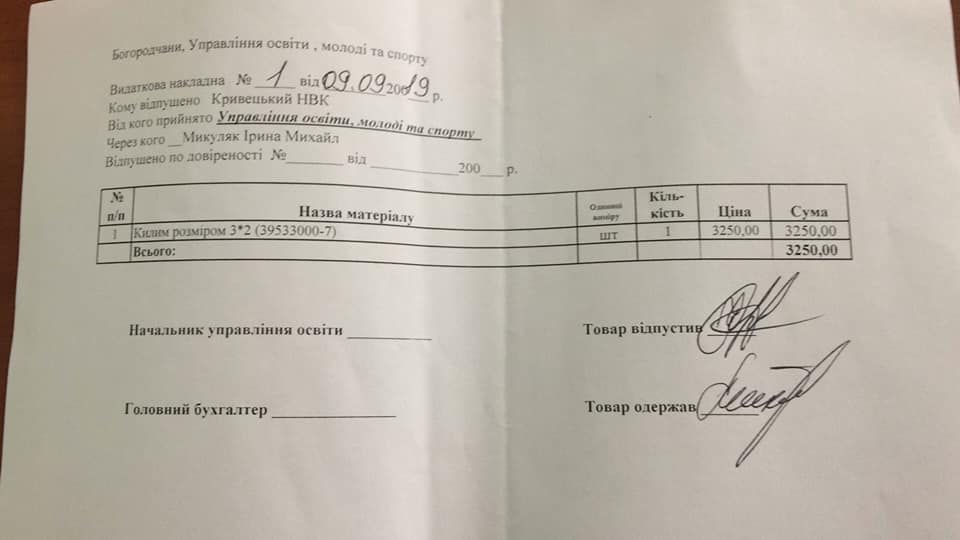 Богородчани, Управління освіти , молоді та спорту
Видаткова накладна № 1 від 09.09 20019 р.
Кому відпущено Кривецький НВК
Від кого прийнято Управління освіти, молоді та спорту
Через кого __Микуляк Ірина Михайл
Відпущено по довіреності №_______ від ____________200___ р.
№ п/п Назва матеріалу Одиниці виміру Кіль-кість Ціна Сума
1 Килим розміром 3*2 (39533000-7) шт 1 3250,00 3250,00
Всього: 3250,00
Начальник управління освіти __________ Товар відпустив
Головний бухгалтер _______________ Товар одержав